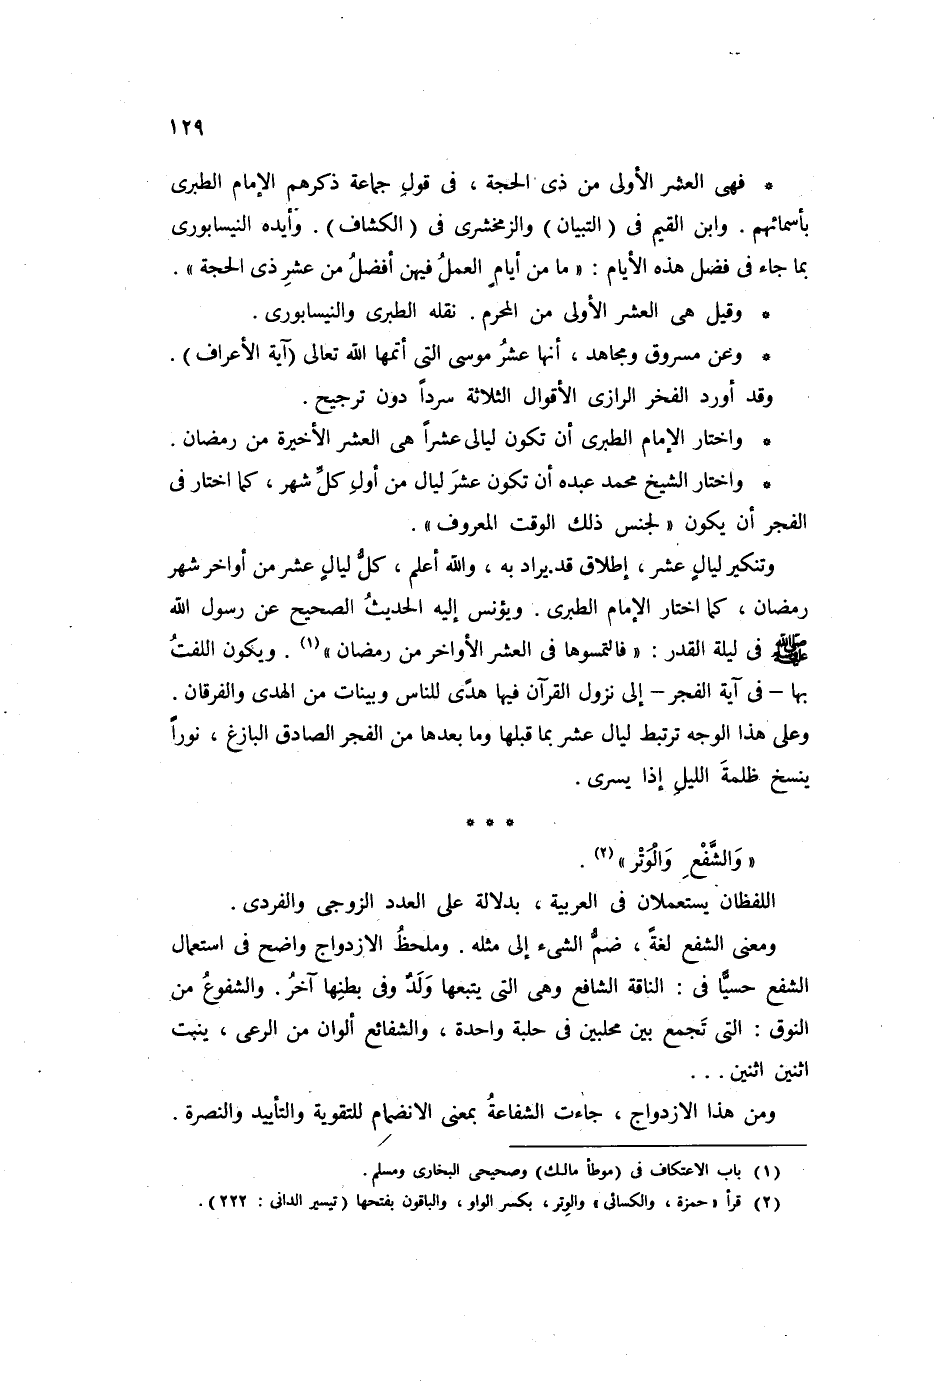 ١٢٩
* فهى العشر الأولى من ذى الحجة ، فى قولِ جماعة ذكرهم الإمام الطبرى
بأسمائهم . وابن القيم فى ( التبيان ) والزمخشرى فى ( الكشاف ) . وأيده النيسابورى
بما جاء فى فضل هذه الأيام : « ما من أيامٍ العملُ فيهن أفضلُ من عشرِ ذى الحجة » .
* وقيل هى العشر الأولى من المحرم . نقله الطبرى والنيسابورى .
* وعن مسروق ومجاهد ، أنها عشرُ موسى التى أتمها الله تعالى (آية الأعراف) .
وقد أورد الفخر الرازى الأقوال الثلاثة سرداً دون ترجيح .
* واختار الإمام الطبرى أن تكون ليالى عشراً هى العشر الأخيرة من رمضان .
* واختار الشيخ محمد عبده أن تكون عشرَ ليال من أولِ كلِّ شهر ، كما اختار فى
الفجر أن يكون « لجنس ذلك الوقت المعروف » .
وتنكير ليالٍ عشر ، إطلاق قد يراد به ، والله أعلم ، كلُّ ليالٍ عشر من أواخر شهر
رمضان ، كما اختار الإمام الطبرى . ويؤنس إليه الحديثُ الصحيح عن رسول الله
ﷺ فى ليلة القدر : « فالتمسوها فى العشر الأواخر من رمضان » (١) . ويكون اللفتُ
بها – فى آية الفجر – إلى نزول القرآن فيها هدًى للناس وبينات من الهدى والفرقان .
وعلى هذا الوجه ترتبط ليال عشر بما قبلها وما بعدها من الفجر الصادق البازغ ، نوراً
ينسخ ظلمةَ الليلِ إذا يسرى .
* * *
« وَالشَّفْعِ وَالْوَتْر » (٢) .
اللفظان يستعملان فى العربية ، بدلالة على العدد الزوجى والفردى .
ومعنى الشفع لغةً ، ضمُّ الشىء إلى مثله . وملحظُ الازدواج واضح فى استعمال
الشفع حسيًّا فى : الناقة الشافع وهى التى يتبعها وَلَدٌ وفى بطنِها آخرُ . والشفوعُ من
النوق : التى تَجمع بين محلبين فى حلبة واحدة ، والشفائع ألوان من الرعى ، ينبت
اثنين اثنين . . .
ومن هذا الازدواج ، جاءت الشفاعةُ بمعنى الانضمام للتقوية والتأييد والنصرة .
(١) باب الاعتكاف فى (موطأ مالك) وصحيحى البخارى ومسلم .
(٢) قرأ « حمزة ، والكسائى » والوِتر ، بكسر الواو ، والباقون بفتحها ( تيسير الدانى : ٢٢٢ ) .